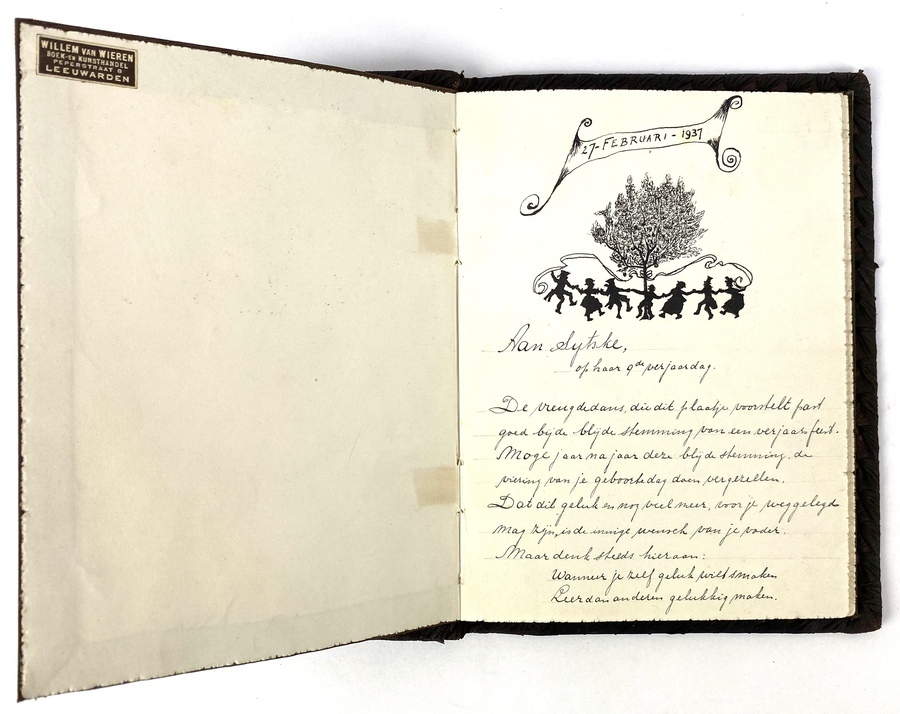 WILLEM VAN WIEREN
BOEK- EN KUNSTHANDEL
PEPERSTRAAT 8
LEEUWARDEN
27-FEBRUARI-1937
Aan Sytske,
op haar 9de verjaardag.
De vreugdedans, die dit plaatje voorstelt past
goed bij de blijde stemming van een verjaarsfeest.
Moge jaar na jaar deze blijde stemming, de
viering van je geboortedag doen vergezellen.
Dat dit geluk en nog veel meer, voor je weggelegd
mag zijn, is de innige wensch van je vader.
Maar denk steeds hieraan:
Wanneer je zelf geluk wilt smaken
Leer dan anderen gelukkig maken.